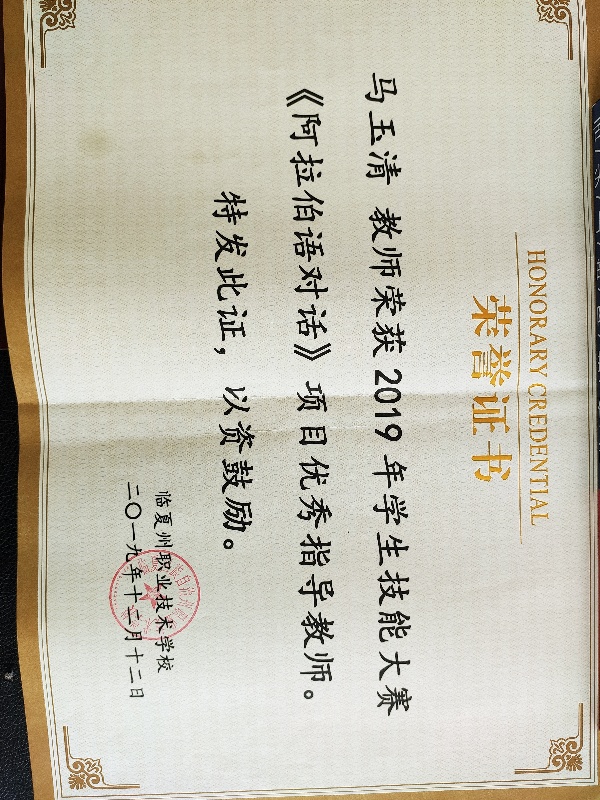 HONORARY CREDENTIAL
荣誉证书
马玉清 教师荣获2019年学生技能大赛
《阿拉伯语对话》项目优秀指导教师。
特发此证，以资鼓励。
临夏州职业技术学校
二〇一九年十二月十二日